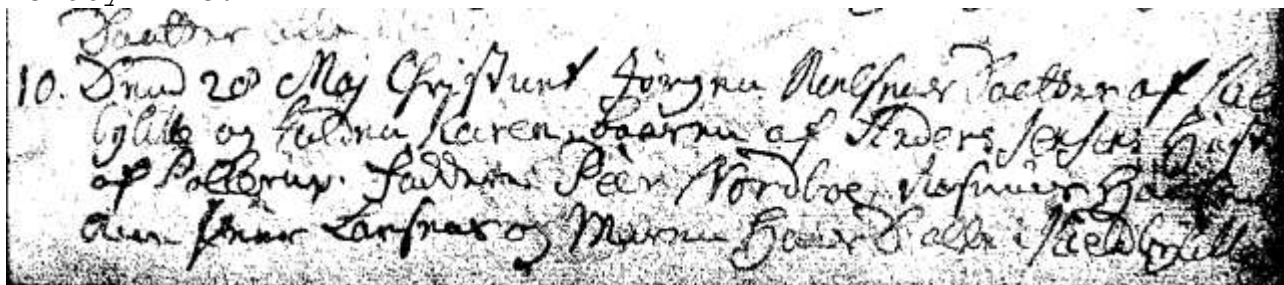 Daatter
10. Dend 28 Maj Christnet Jørgen Nielsens Daatter af Kiel
bylille og kalden Karen, baaren af Anders Jensens Hustr
af Pollerup. Faddere Peer Nordboe, Rasmus
Peer Larsens og Maren Daatter i Kieldbylille